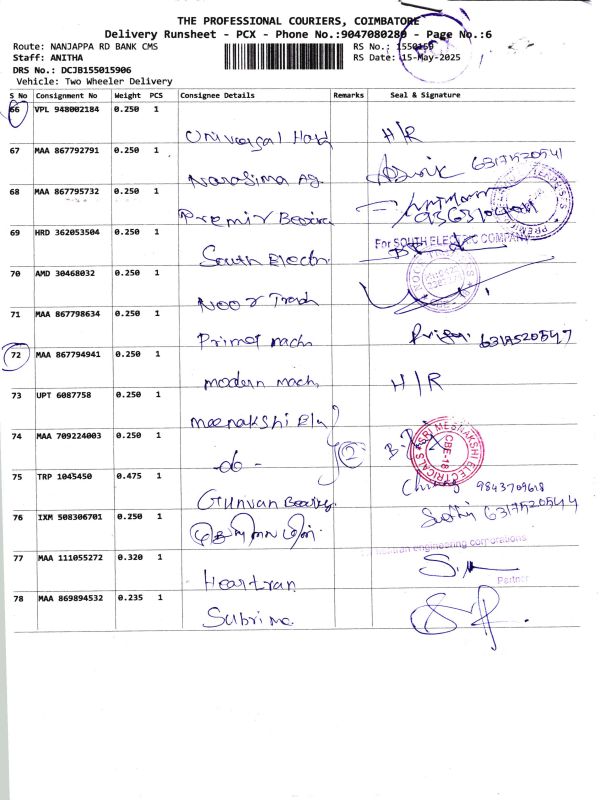 THE PROFESSIONAL COURIERS, COIMBATORE
Delivery Runsheet - PCX - Phone No.:9047080280 - Page No.:6
Route: NANJAPPA RD BANK CMS
RS No.: 1550159
Staff: ANITHA
RS Date: 15-May-2025
DRS No.: DCJB155015906
Vehicle: Two Wheeler Delivery
S No Consignment No Weight PCS Consignee Details Remarks Seal & Signature
66 VPL 948002184 0.250 1
Universal Hard H/R
67 MAA 867792791 0.250 1
Narasima Ag. 6317520541
68 MAA 867795732 0.250 1
Premir Bearing
69 HRD 362053504 0.250 1
For SOUTH ELECTRIC COMPANY
South Electr.
70 AMD 30468032 0.250 1
Noor Trad
71 MAA 867798634 0.250 1
Primet mach 6317520547
72 MAA 867794941 0.250 1
modern mach, H/R
73 UPT 6087758 0.250 1
meenakshi Ele
74 MAA 709224003 0.250 1
-do- 2
SRI MEENAKSHI ELECTRICALS
CBE-18
75 TRP 1045450 0.475 1
Gunvan Bearing. 9843709618
76 IXM 508306701 0.250 1
6317520544
77 MAA 111055272 0.320 1
engineering corporations
Heartran
Partner
78 MAA 869894532 0.235 1
Subrima